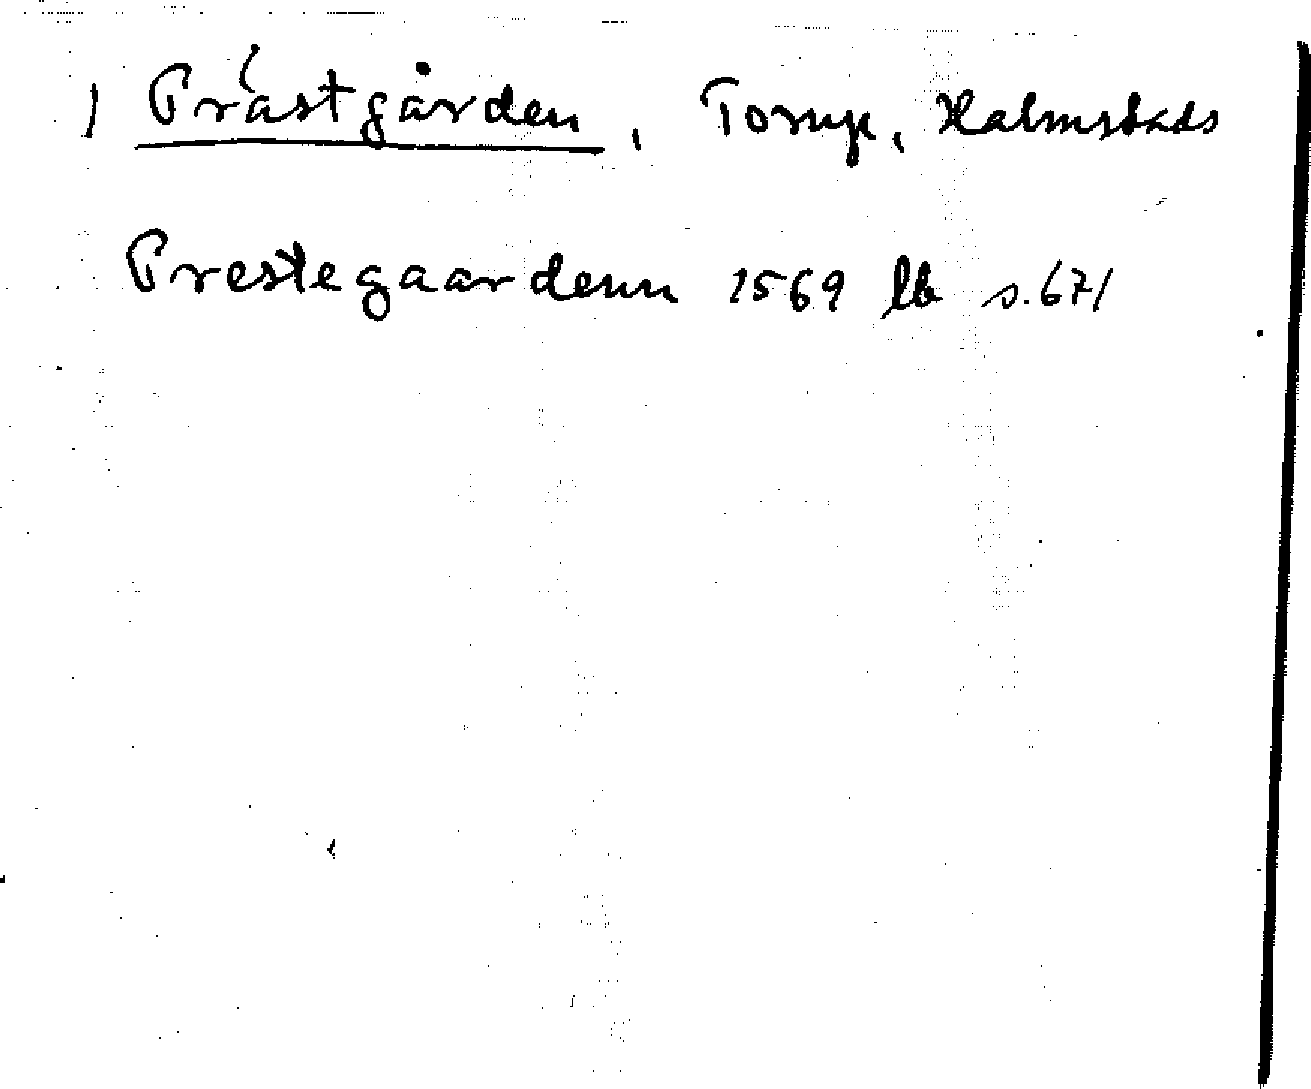 ) Prästgården, Torup, Halmstads
Prestegaardenn 1569 lb s. 671